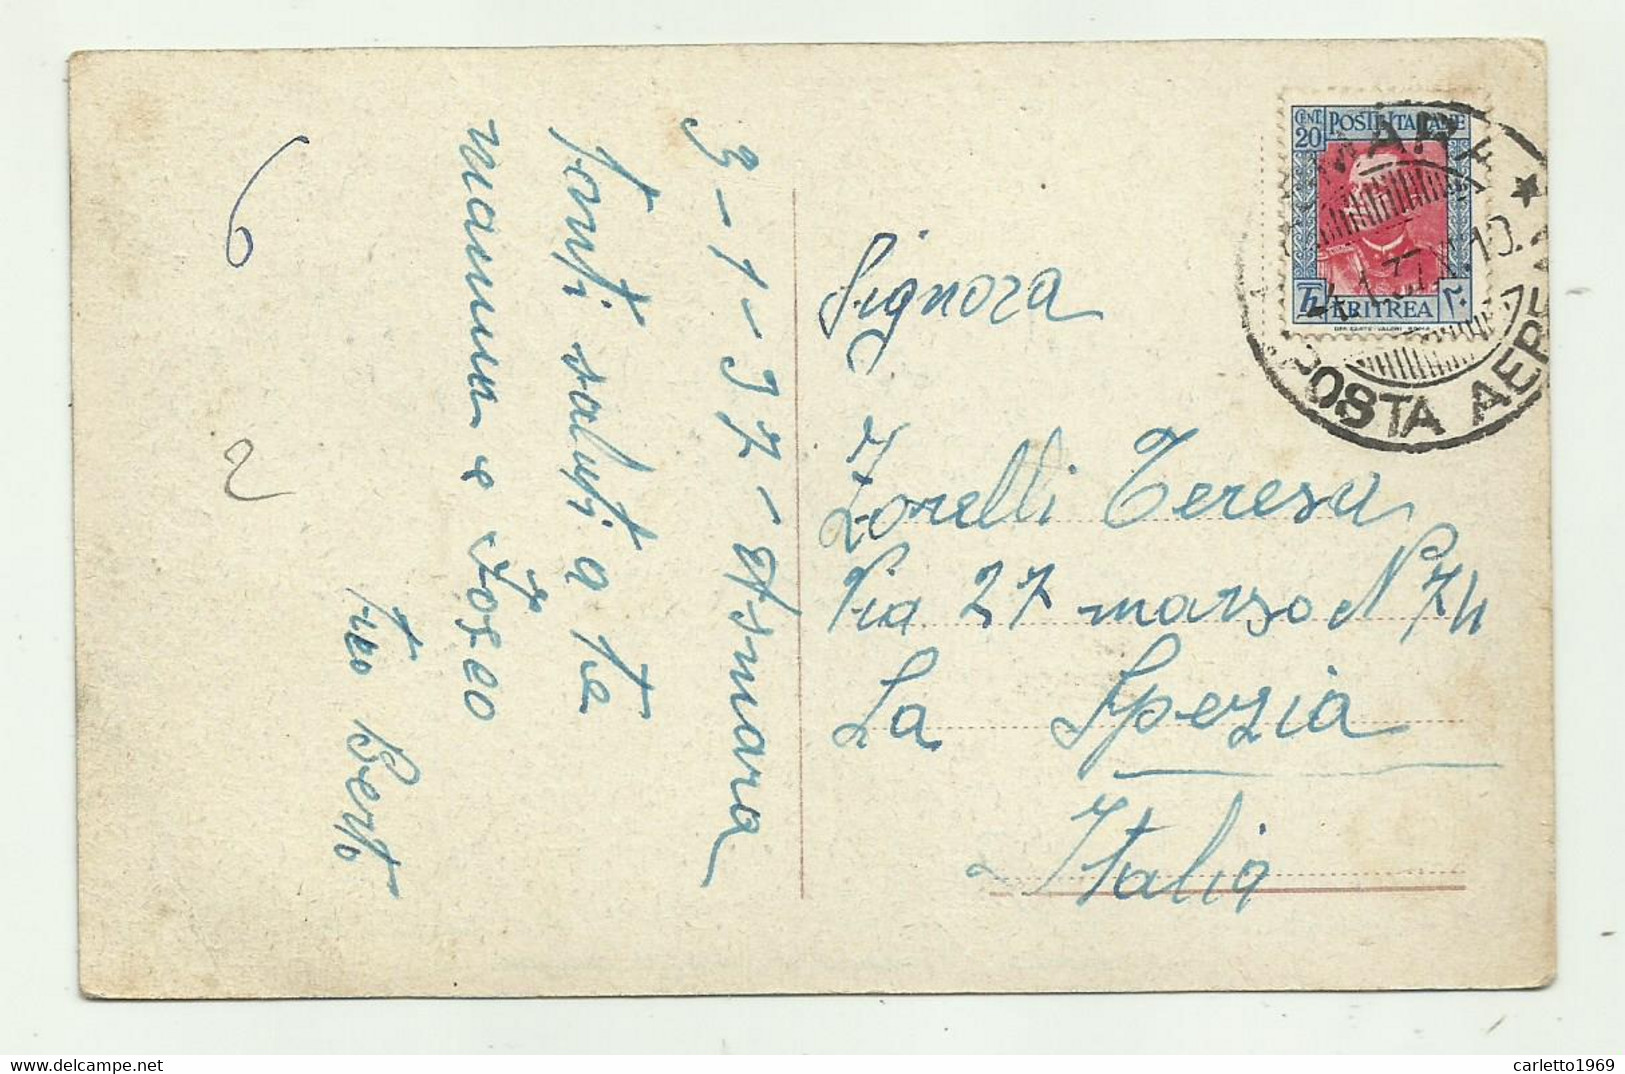 3-1-37-Asmara
Tanti saluti a te
mamma e Ioseo
tuo Berto
6
2
CENT. 20
POSTE ITALIANE
ERITREA
POSTA AEREA
Signora
Zorelli Teresa
Via 27 marzo N 74
La Spezia
Italia
delcampe.net
carletto1969